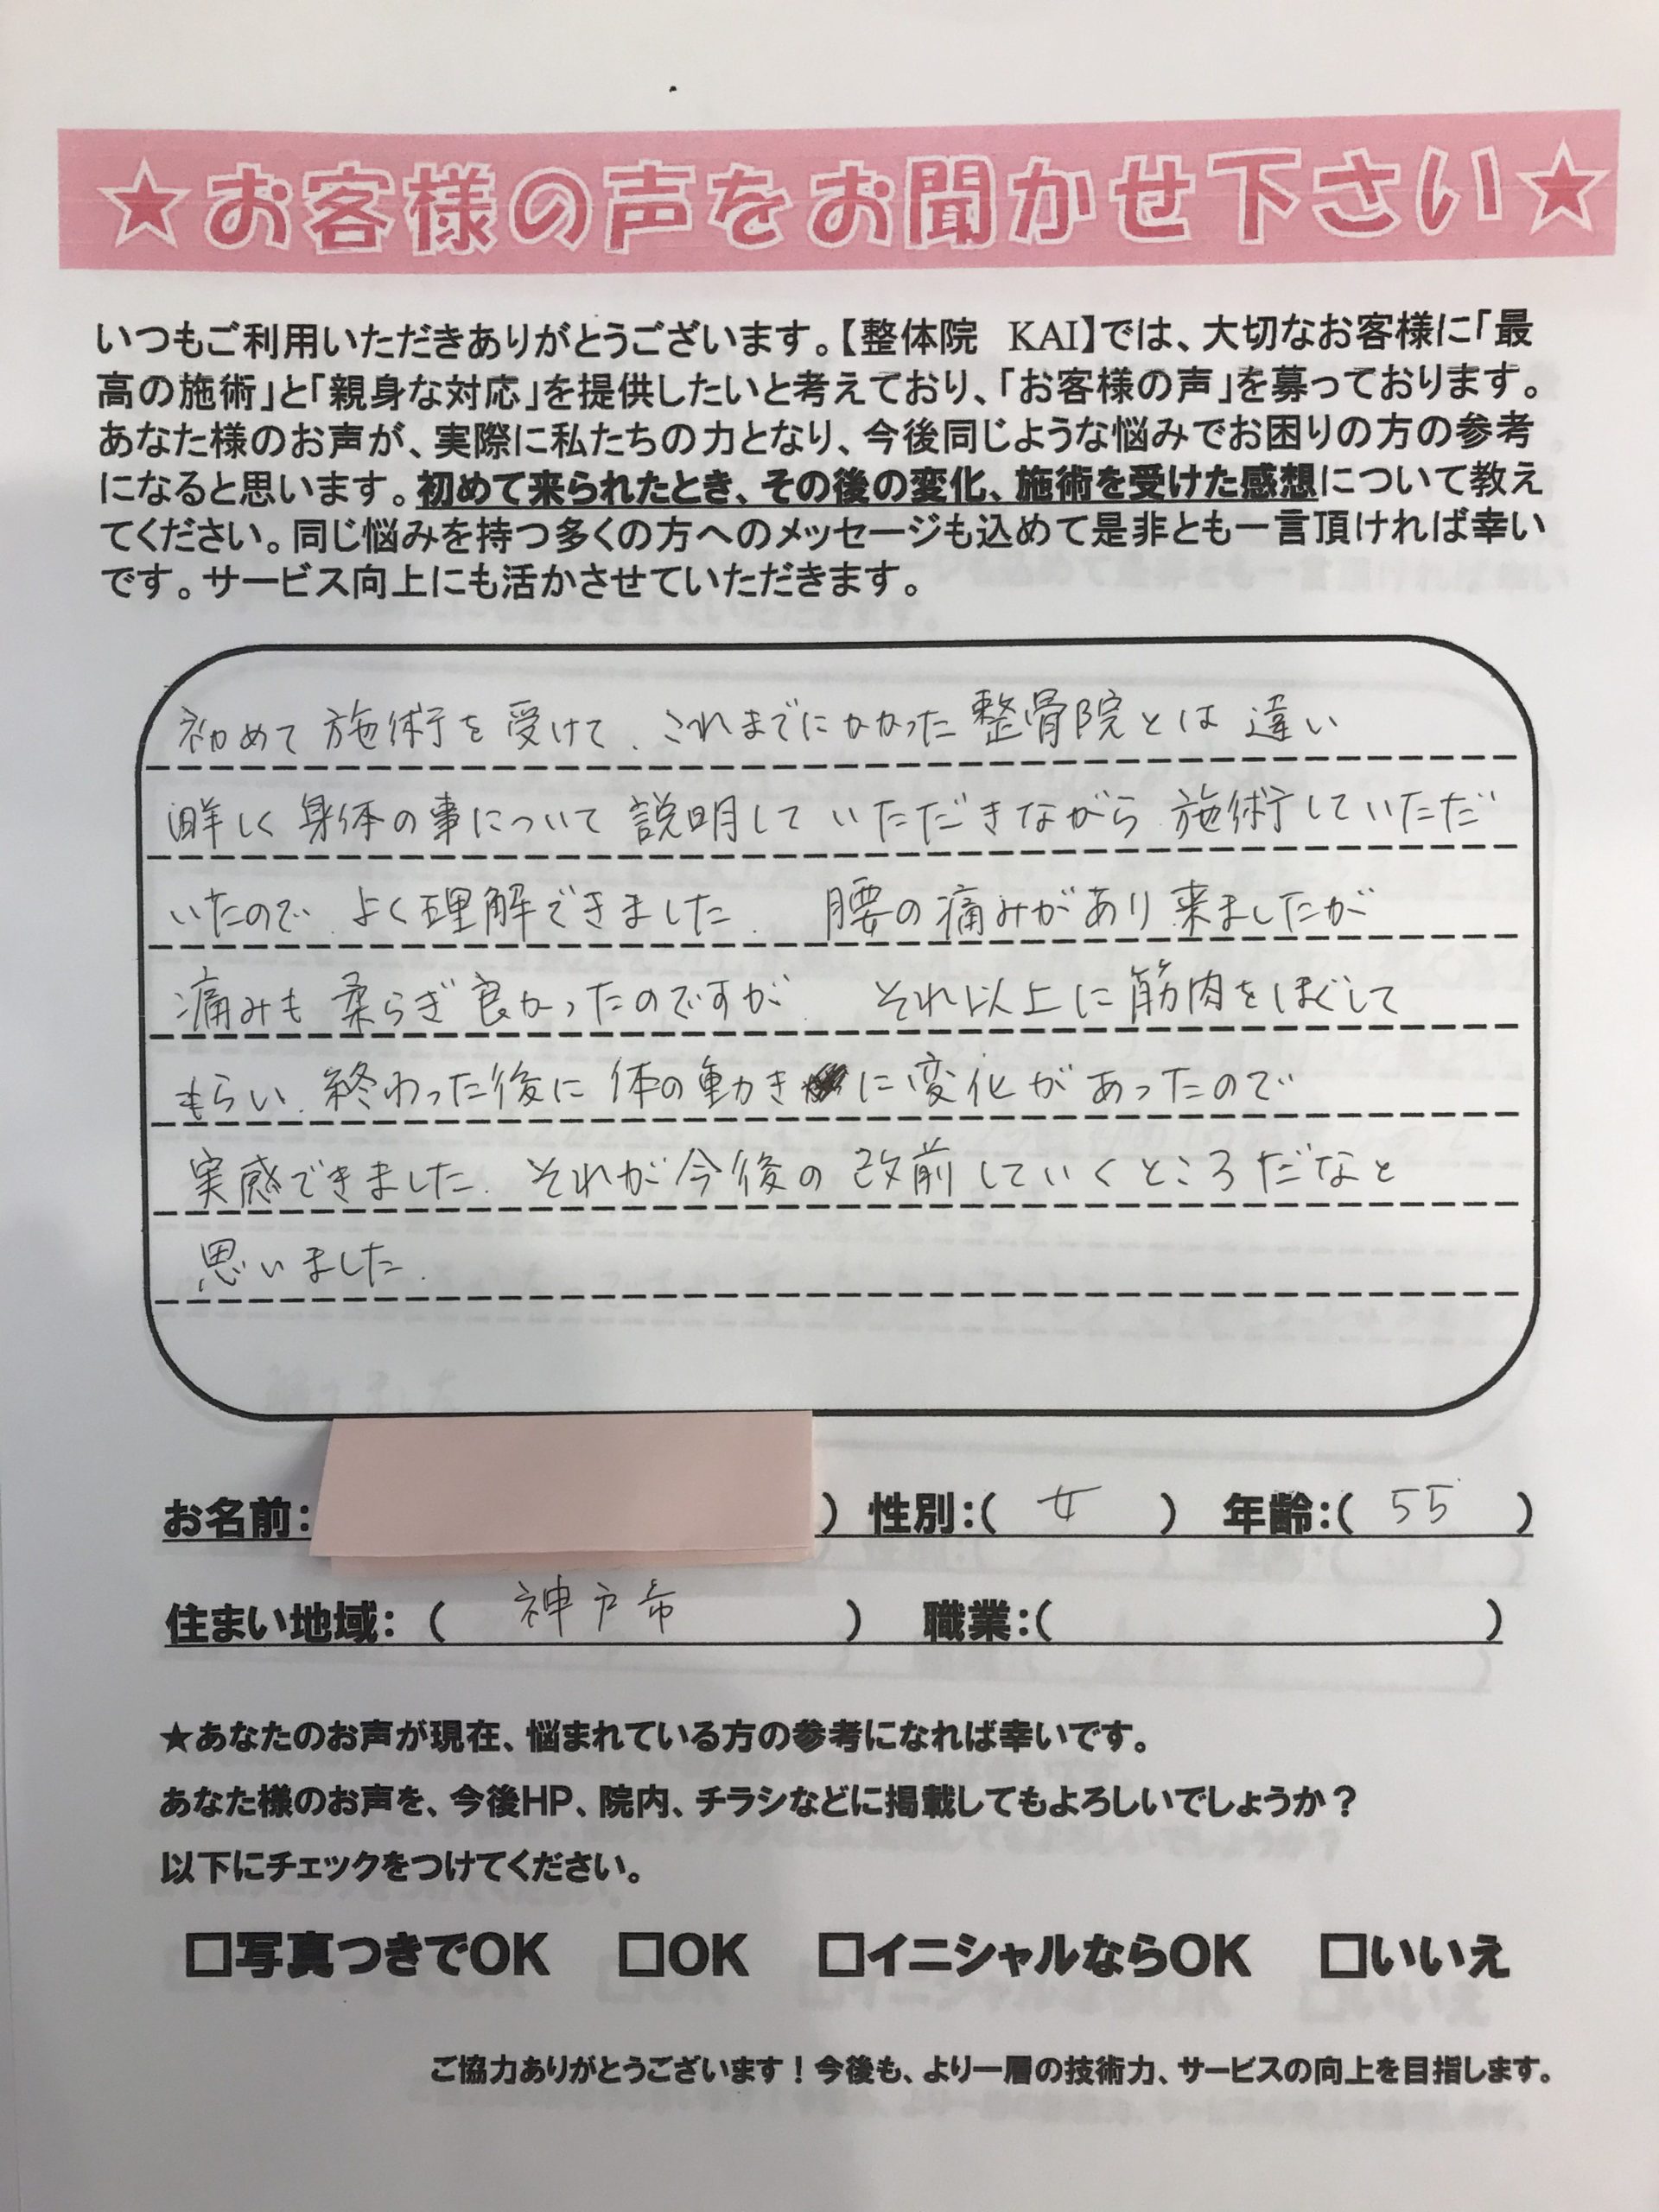 ★お客様の声をお聞かせ下さい★
いつもご利用いただきありがとうございます。【整体院　KAI】では、大切なお客様に「最
高の施術」と「親身な対応」を提供したいと考えており、「お客様の声」を募っております。
あなた様のお声が、実際に私たちの力となり、今後同じような悩みでお困りの方の参考
になると思います。初めて来られたとき、その後の変化、施術を受けた感想について教え
てください。同じ悩みを持つ多くの方へのメッセージも込めて是非とも一言頂ければ幸い
です。サービス向上にも活かさせていただきます。
初めて施術を受けて、これまでにかかった整骨院とは違い
詳しく身体の事について説明していただきながら施術していただ
いたので、よく理解できました。腰の痛みがあり来ましたが
痛みも柔らぎ良かったのですが、それ以上に筋肉をほぐして
もらい、終わった後に体の動きに変化があったので
実感できました。それが今後の改前していくところだなと
思いました。
お名前：　）性別：（女）年齢：（55）
住まい地域：（神戸市）職業：（　）
★あなたのお声が現在、悩まれている方の参考になれば幸いです。
あなた様のお声を、今後HP、院内、チラシなどに掲載してもよろしいでしょうか？
以下にチェックをつけてください。
□写真つきでOK　□OK　□イニシャルならOK　□いいえ
ご協力ありがとうございます！今後も、より一層の技術力、サービスの向上を目指します。